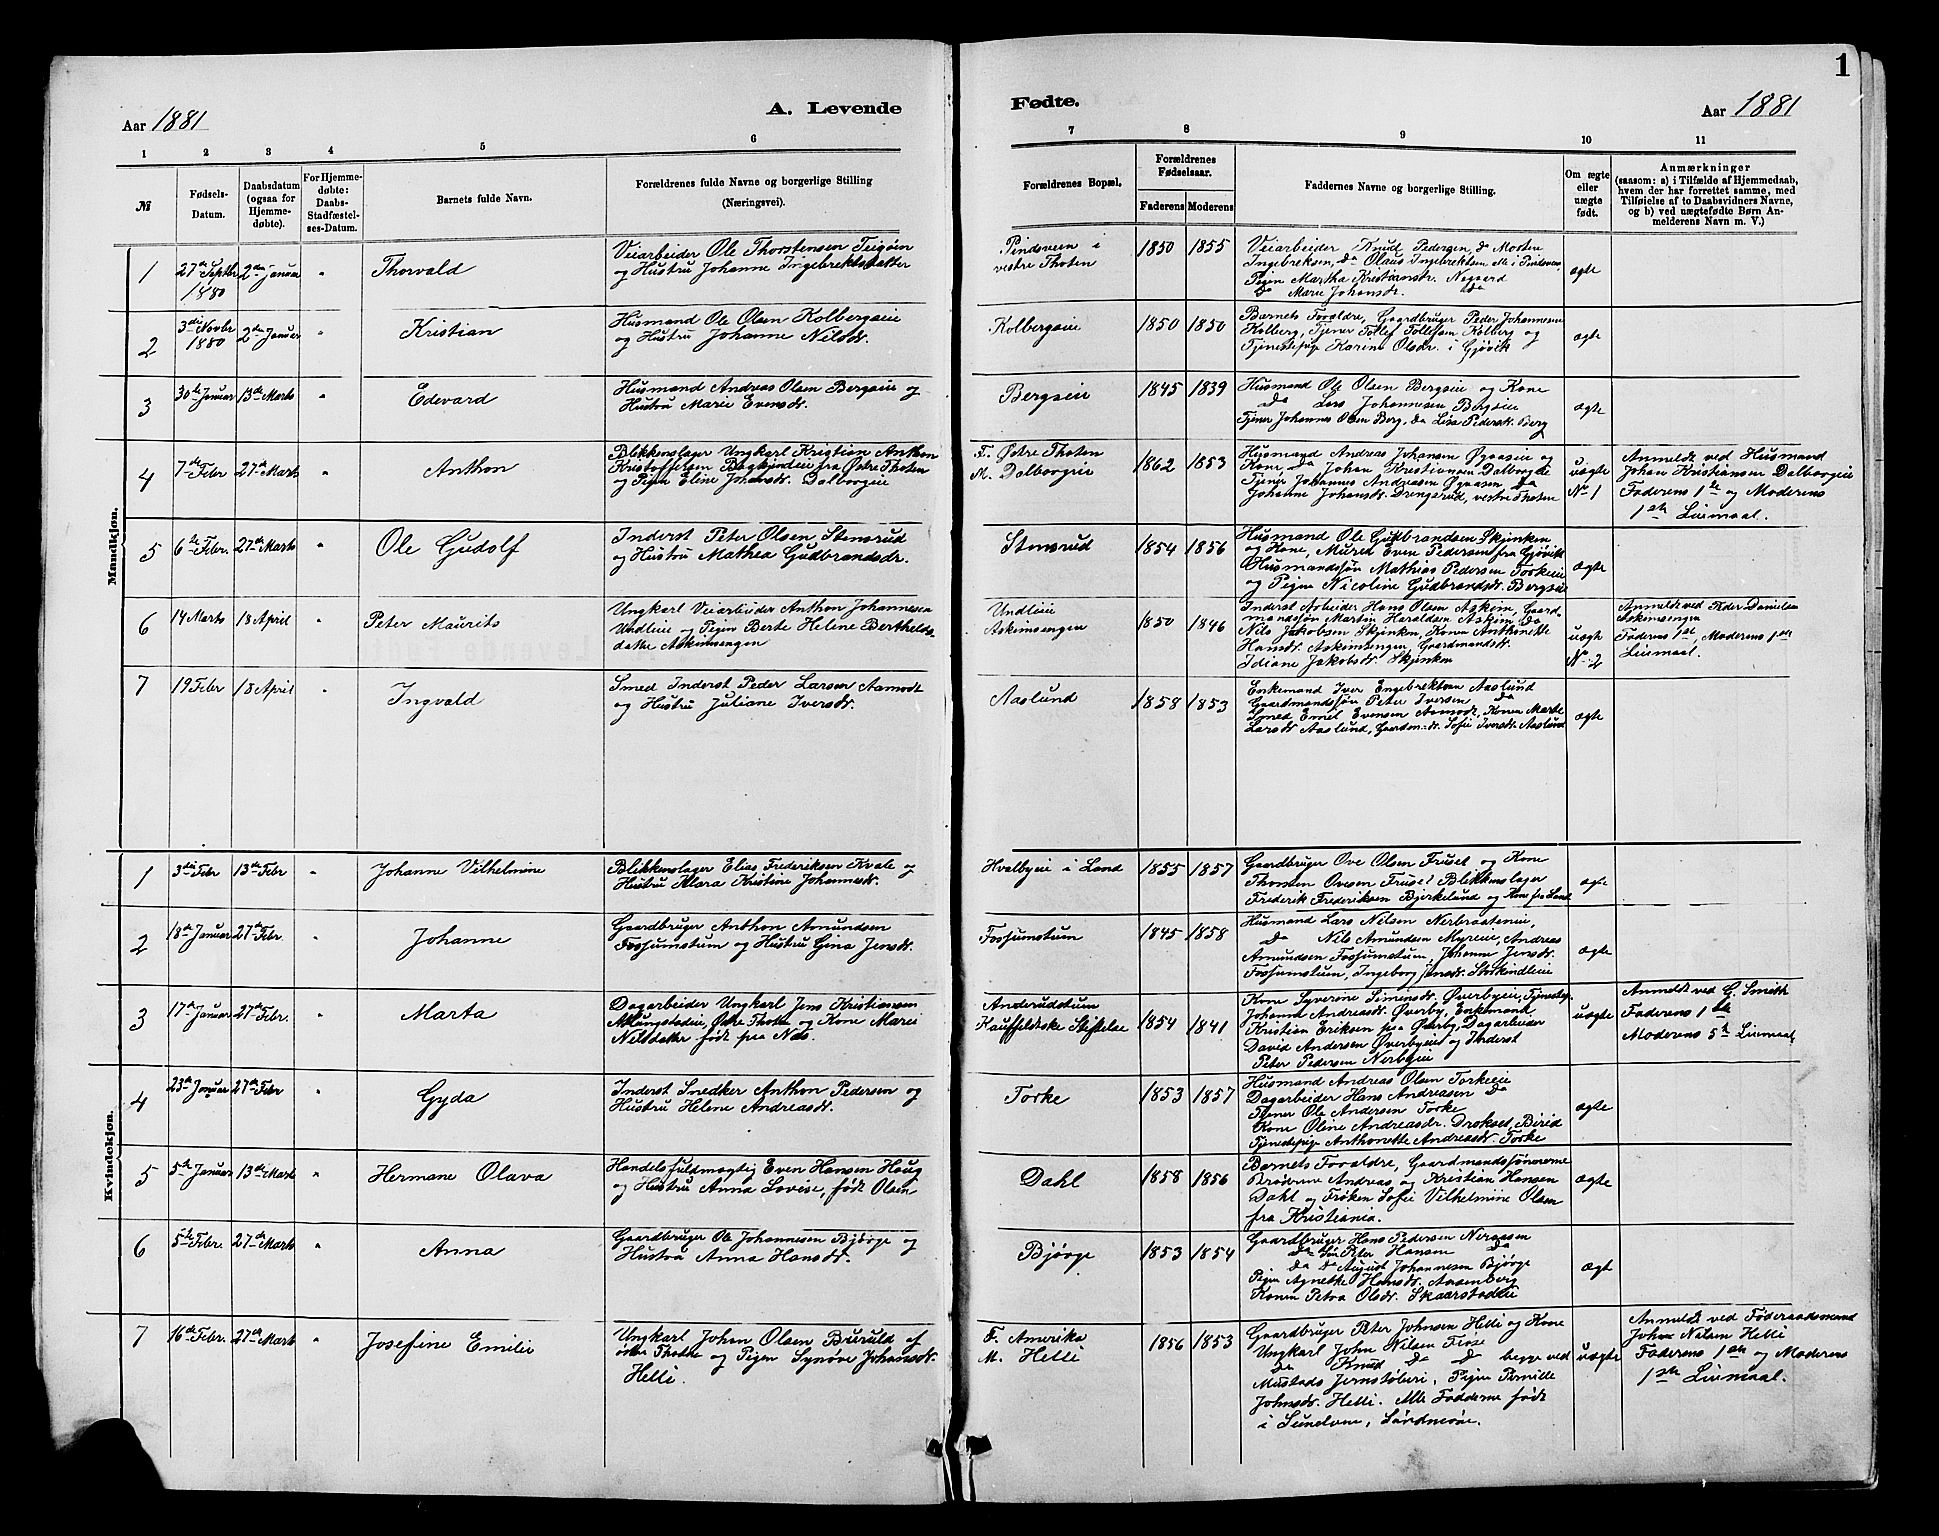 1
A. Levende Fødte.
Aar 1881
Aar 1881
1 2 3 4 5 6 7 8 9 10 11
№
Fødsels-Datum.
Daabsdatum (ogsaa for Hjemme-døbte).
For Hjemme-døbte: Daabs-Stadfæstel-ses-Datum.
Barnets fulde Navn.
Forældrenes fulde Navne og borgerlige Stilling (Næringsvei).
Forældrenes Bopæl.
Forældrenes Fødselsaar.
Faderens Moderens
Faddernes Navne og borgerlige Stilling.
Om ægte eller uægte født.
Anmærkninger
(saasom: a) i Tilfælde af Hjemmedaab, hvem der har forrettet samme, med Tilføielse af to Daabsvidners Navne, og b) ved uægtefødte Børn An-melderens Navn m. V.)
Mandkjøn.
1 27de Septbr 1880 2den Januar " Thorvald
Veiarbeider Ole Thorstensen Teigøen
og Hustru Johanne Ingebrektsdatter
Pindsveen i
vestre Thoten
1850 1855
Veiarbeider Knud Pedersen, do Morten
Ingebreksen, do Olaus Ingebrektsen Alle i Pindsveen
Pigen Martha Kristiansdr. Nøgaard
do Marie Johansdr. do
ægte
2 3die Novbr 1880 2den Januar " Kristian
Husmand Ole Olsen Kolbergseie
og Hustru Johanne Nilsdr.
Kolbergseie
1850 1850
Barnets Forældre, Gaardbruger Peder Johannesen
Kolberg, Tjener Tollef Tollefsen Kolberg og
Tjenestepige Karine Olsdr. i Gjøvik
ægte
3 30te Januar 13de Marts " Edevard
Husmand Andreas Olsen Bergseie og
Hustru Marie Evensdr.
Bergseie
1845 1839
Husmand Ole Olsen Bergseie og Kone
do Lars Johannesen Bergseie
Tjener Johannes Olsen Berg, do Lisa Pedersdr. Berg
ægte
4 7de Febr 27de Marts " Anthon
Blikkenslager Ungkarl Kristian Anthon
Kristoffersen fra Østre Thoten
og Pigen Eline Johansdr. Dalborgeie
F. Østre Thoten
M. Dalborgeie
1862 1853
Husmand Andreas Johansen Øgaaseie og
Kone, do Johan Kristiansen Dalborgeie
Tjener Johannes Andreasen Øgaasen do
Johanne Johansdr. Drengsrud, vestre Thoten
uægte
No 1
Anmeldt ved Husmand
Johan Kristiansen Dalborgeie
Faderens 1ste og Moderens
1ste Leiemaal.
5 6te Febr. 27de Marts " Ole Gudolf
Inderst Peter Olsen Stensrud
og Hustru Mathea Gudbrandsdr.
Stensrud
1854 1856
Husmand Ole Gudbrandsen Skjenken
og Kone, Murer Even Pedersen fra Gjøvik
Husmandssøn Mathias Pedersen Torkeeie
og Pigen Nicoline Gudbrandsdr. Bergseie
ægte
6 14 Marts 18 April Peter Maurits
Ungkarl Veiarbeider Anthon Johannesen
Undleie og Pigen Berte Helene Berthelds
datter Askimsengen
Undleie
Askimsengen
1850 1846
Inderst Arbeider Hans Olsen Askim, Gaard-
mandssøn Martin Haraldsen Askim, do
Nils Jakobsen Skjenken, Konen Anthonette
Hansdr. Askimsengen, Gaardmandsdr.
Idiane Jakobsdr. Skjenken
uægte
No. 2
Anmeldt ved Peder Danielsen
Askimsengen
Faderens 1ste, Moderens 1ste
Leiemaal.
7 19 Febr 18 April Ingvald
Smed Inderst Peder Larsen Aamodt
og Hustru Juliane Iversdr.
Aaslund
1858 1853
Enkemand Iver Engebrektsen Aaslund
Gaardmandssøn Peter Iversen do
Smed Emel Evensen Aamodt, Konen Marte
Larsdr Aaslund, Gaardm.dr. Sofie Iversdr. Aaslund
ægte
Kvindekjøn.
1 3die Febr 13de Febr " Johanne Vilhelmine
Blikkenslager Elias Frederiksen Kvale og
Hustru Klara Kristine Johannesdr.
Hvalbyeie i Land
1855 1857
Gaardbruger Ove Olsen Fruset og Kone
Thomten Ovesen Fruset Blikkenslager
Frederik Frederiksen Bjerkelund og Kone fra Land
ægte
2 18de Januar 27de Febr. " Johanne
Gaardbruger Anthon Amundsen
Fossumstum og Hustru Gina Jensdr.
Fossumstum
1845 1858
Husmand Lars Nilsen Nerbraateneie,
do Nils Amundsen Myreeie, Andreas
Amundsen Fossumstum, Johanne Jensdr.
Fossumstum, Ingeborg Jensdr. Stokindleie
ægte
3 17de Januar 27de Febr. " Marta
Dagarbeider Ungkarl Jens Kristiansen
Alungstadeie, Østre Thoten og Kone Marie
Nilsdatter født paa Næs.
Anderudstum
Kauffeldtske Stiftelse
1854 1841
Kone Syverine Simensdr. Øverbyeie, Tjenestep.
Johanna Andreasdr. Øverby, Enkemand
Kristian Eriksen paa Øverby, Dagarbeider
David Andersen Øverbyeie og Inderst
Peter Pedersen Nerbyeie
uægte
Anmeldt ved G. Smith
Faderens 1ste
Moderens 5te Leiemaal
4 23de Januar 27de Febr " Gyda
Inderst Snedker Anthon Pedersen og
Hustru Helene Andreasdr.
Torke
1853 1857
Husmand Andreas Olsen Torkeeie
Dagarbeider Hans Andreasen do
Tjener Ole Andersen Torke
Kone Oline Andreasdr. Drokset, Birid
Tjenestepige Anthonette Andreasdr. Torke
ægte
5 5te Januar 13de Marts " Hermane Olava
Handelsfuldmægtig Even Hansen Houg
og Hustru Anna Lovise, født Olsen
Dahl
1858 1856
Barnets Forældre, Gaardmandssønnerne
Brødrene Andreas og Kristian Hansen
Dahl og Frøken Sofie Vilhelmine Olsen
fra Kristiania.
ægte
6 5te Febr. 27de Marts " Anna
Gaardbruger Ole Johannesen Bjørge og
Hustru Anna Hansdr.
Bjørge
1853 1854
Gaardbruger Hans Pedersen Neraasen
do Søn Peter Hansen do
do do August Johannesen Bjørge
Pigen Agnethe Hansdr. Aasenberg
Konen Petra Olsdr. Skaarstadeie
ægt
7 16de Febr. 27de Marts " Josefine Emilie
Ungkarl Johan Olsen Buruld af
østre Thoten og Pigen Synøve Johansdr.
Helli.
F. Amerika
M. Helli
1856 1853
Gaardbruger Peter Johnsen Helli og Kone
Ungkarl John Nilsen Fiøse
do Knud do do begge ved
Mustads Jernstøberi, Pigen Pernille
Johnsdr. Helli. Alle Fadderne født
i Sunelven, Søndmøre.
uægte
Anmeldt ved Føderaadsmand
John Nilsen Helli
Faderens 1ste og Moderens
1ste Leiemaal.